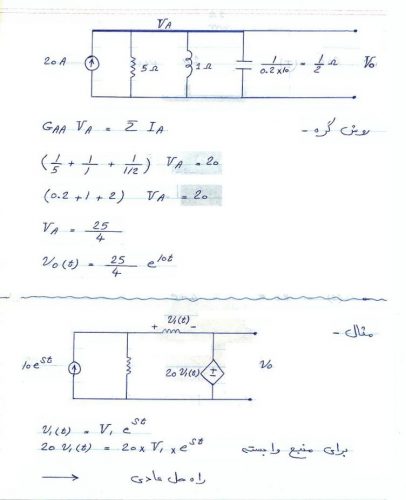 V_A
20 A   5 Ω   1 Ω   1/(0.2×10) = 1/2 Ω   V₀
روش گره -
G_AA V_A = Σ I_A
(1/5 + 1/1 + 1/(1/2)) V_A = 20
(0.2 + 1 + 2) V_A = 20
V_A = 25/4
V₀(t) = 25/4 e^{10t}
مثال -
+ V₁(t) -
10 e^{st}   20 V₁(t)   ±   V₀
V₁(t) = V₁ e^{st}
20 V₁(t) = 20 × V₁ × e^{st}   برای منبع وابسته
→ راه حل عادی